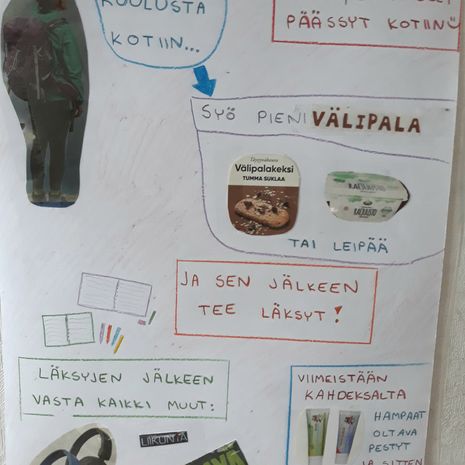 KOULUSTA
KOTIIN...
PÄÄSSYT KOTIIN
SYÖ PIENI VÄLIPALA
Välipalakeksi
TUMMA SUKLAA
TAI LEIPÄÄ
JA SEN JÄLKEEN
TEE LÄKSYT!
LÄKSYJEN JÄLKEEN
VASTA KAIKKI MUUT:
LIIKUNTA
VIIMEISTÄÄN
KAHDEKSALTA
HAMPAAT
OLTAVA
PESTYT
JA SITTEN